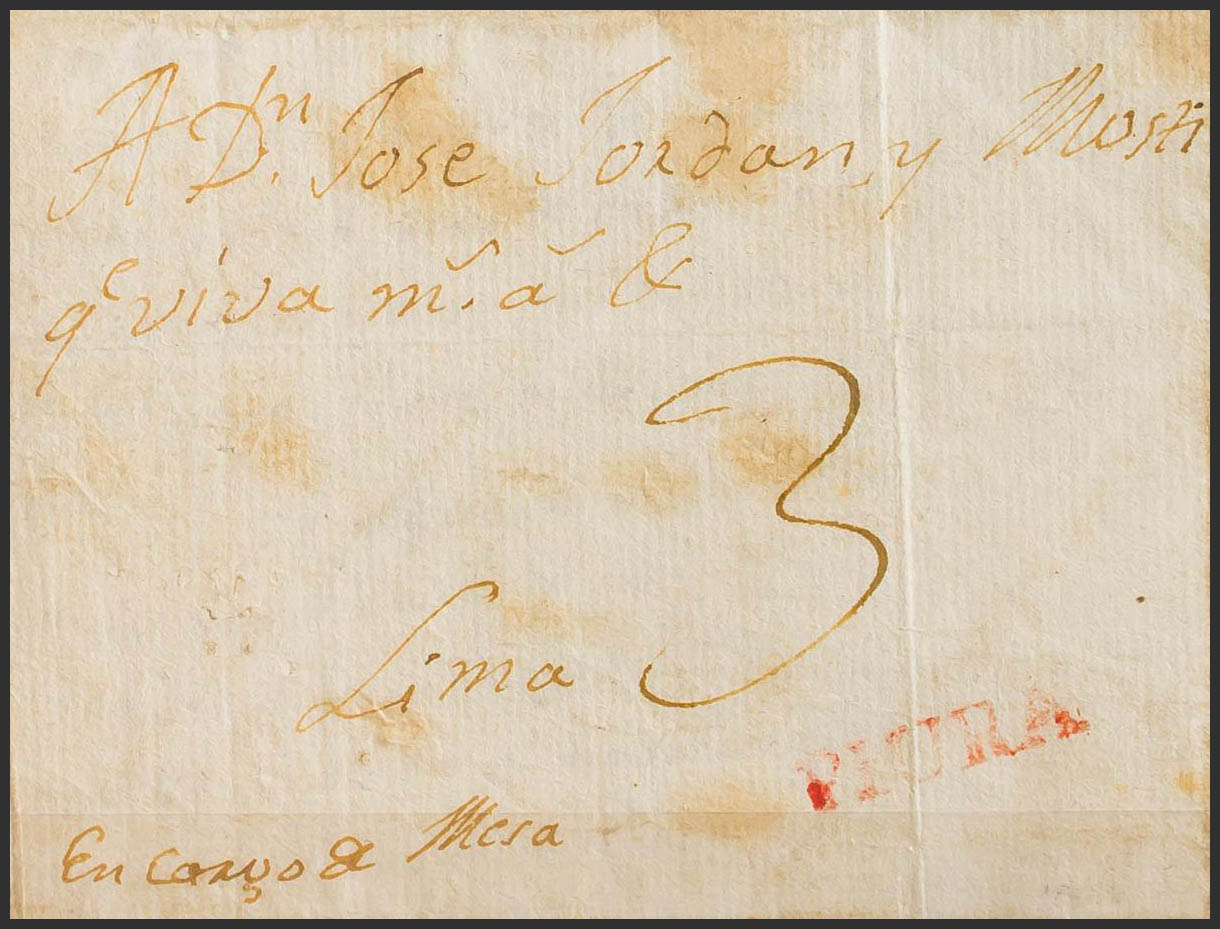 A Dn. Jose Jordan, y Mosti
qe viva ms. as &
3
Lima
PIURA
En Cargo de Mesa